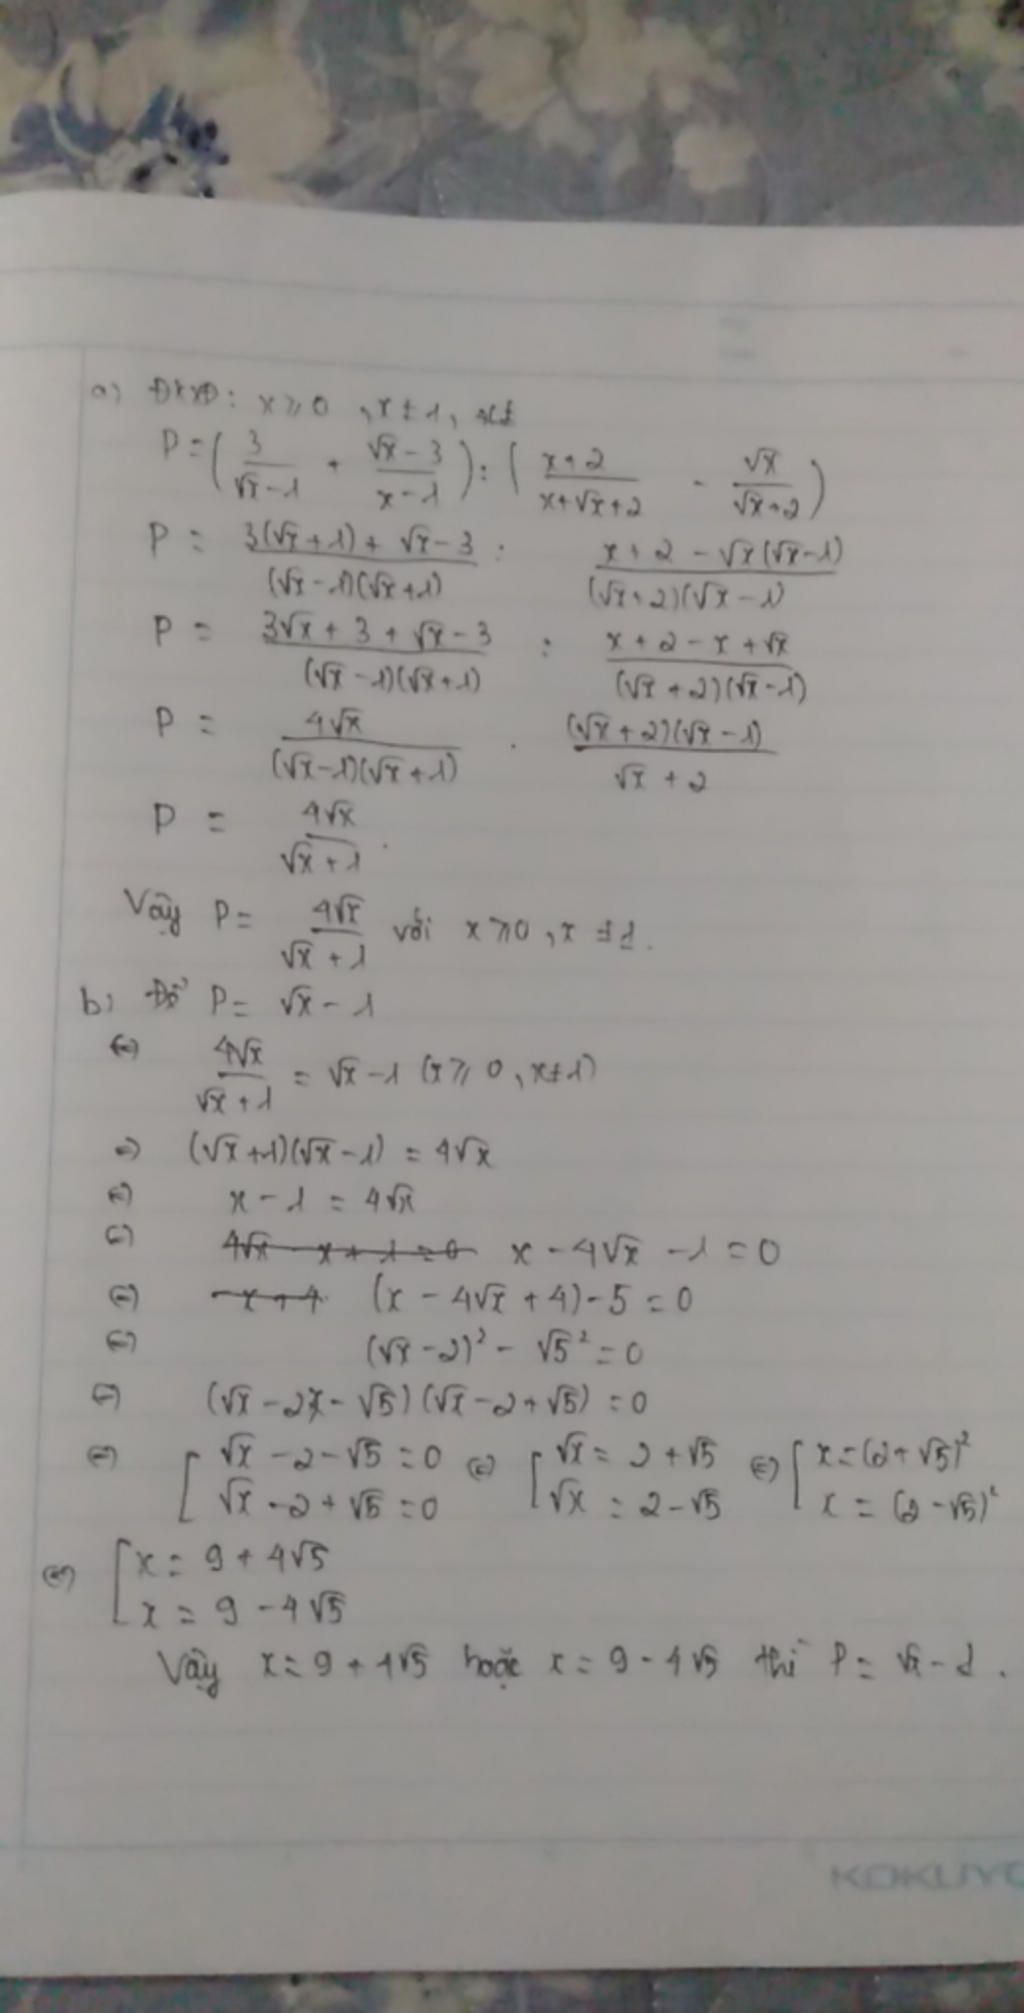 a) ĐKXĐ: x ≥ 0, x ≠ 1,
P = (3/(√x - 1) + (√x - 3)/(x - 1)) : ((x + 2)/(x + √x + 2) - √x/(√x + 2))
P = (3(√x + 1) + √x - 3)/((√x - 1)(√x + 1)) : (x + 2 - √x(√x - 1))/((√x + 2)(√x - 1))
P = (3√x + 3 + √x - 3)/((√x - 1)(√x + 1)) : (x + 2 - x + √x)/((√x + 2)(√x - 1))
P = 4√x/((√x - 1)(√x + 1)) . ((√x + 2)(√x - 1))/(√x + 2)
P = 4√x/(√x + 1).
Vậy P = 4√x/(√x + 1) với x ≥ 0, x ≠ 1.
b) Để P = √x - 1
⇔ 4√x/(√x + 1) = √x - 1 (x ≥ 0, x ≠ 1)
⇒ (√x + 1)(√x - 1) = 4√x
⇔ x - 1 = 4√x
⇔ 4√x - x + 1 = 0 x - 4√x - 1 = 0
⇔ - x + 4 (x - 4√x + 4) - 5 = 0
⇔ (√x - 2)² - √5² = 0
⇔ (√x - 2 - √5)(√x - 2 + √5) = 0
⇔ [ √x - 2 - √5 = 0 ⇔ [ √x = 2 + √5 ⇔ [ x = (2 + √5)²
√x - 2 + √5 = 0 √x = 2 - √5 x = (2 - √5)²
⇔ [ x = 9 + 4√5
x = 9 - 4√5
Vậy x = 9 + 4√5 hoặc x = 9 - 4√5 thì P = √x - 1.
KOKUYO